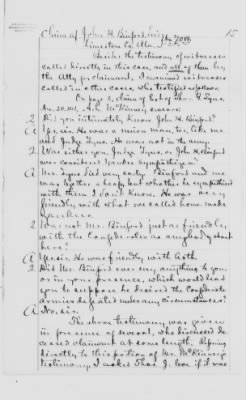 Claim of John H. Binford
15
Limestone Co. Ala.
Besides the testimony of witnesses
called directly in this case, and all of them by
the Atty for claimant, I examined witnesses
called in other cases, who testified as follows
On page 3, claim of Est. of Thos. G. Tyus,
No. McKinney swears
Q Did you intimately know John H. Binford?
A Yes sir. He was a union man, too, like me
and Judge Tyus. He was not in the army.
Q Was either you, Judge Tyus, or John H. Binford
was considered Yankee sympathizers?
A Mr. Tyus died very early. Binford and me
was both a heap, but whether he sympathized
with them I don't know. He was very
friendly with what we called home made
Yankees.
Q Was not Mr. Binford just as friendly
with the Confederates as anybody about
here?
A Yes sir. He was friendly with both.
Q Did Mr. Binford ever say anything to you,
or in your presence, which would lead
you to suppose he desired the Confederate
armies defeated under any circumstances?
A No, sir.
The above testimony was given
in presence of several, who discussed de-
ceased claimant at some length. Referring
directly to this portion of Mr. McKinney's
testimony I asked Thos. J. Cox if it was